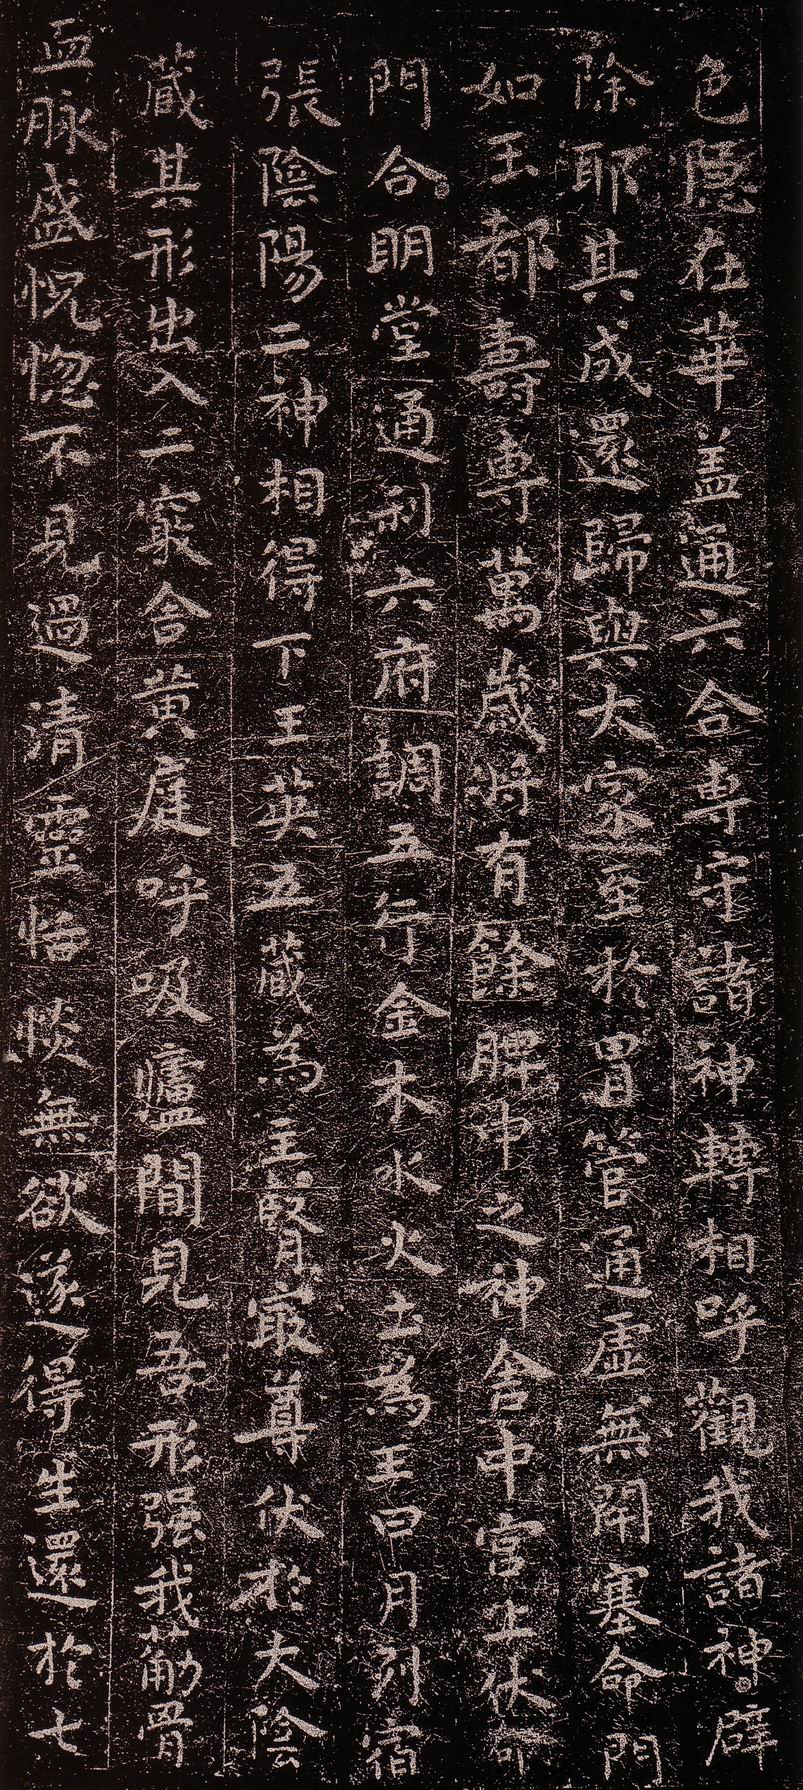 色隱在華盖通六合専守諸神轉相呼觀我諸神辟
除耶其成還歸與大家至於胃管通虛無閉塞命門
如玉都壽専萬歲将有餘脾中之神舍中宮上伏命
門合明堂通利六府調五行金木水火土為王日月列宿
張陰陽二神相得下玉英五藏為主腎㝡尊伏於大陰
藏其形出入二竅舍黄庭呼吸爐間見吾形强我筋骨
血脉盛怳惚不見過清靈恬惔無欲遂得生還於七